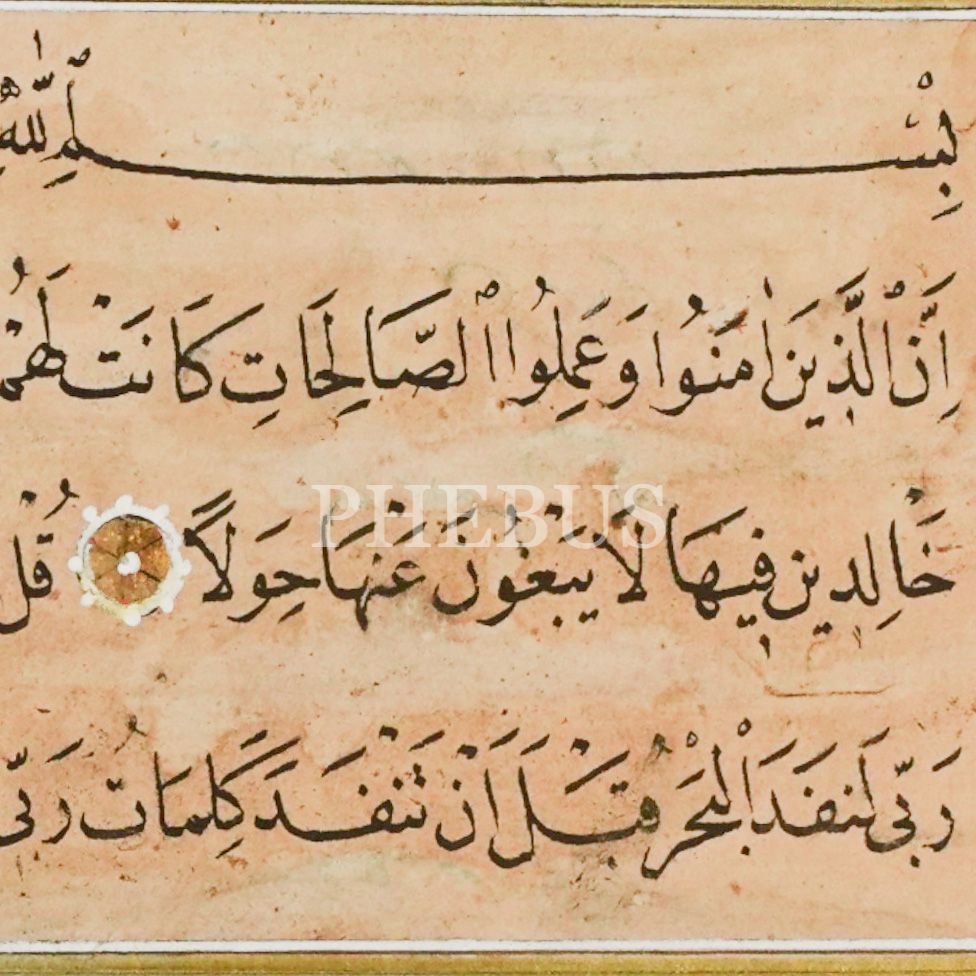 بِسْمِ ٱللّٰهِ
اِنَّ ٱلَّذِينَ اٰمَنُوا وَعَمِلُوا ٱلصَّالِحَاتِ كَانَتْ لَهُمْ
خَالِدِينَ فِيهَا لَا يَبْغُونَ عَنْهَا حِوَلًا قُلْ
PHEBUS
رَبِّى لَنَفِدَ الْبَحْرُ قَبْلَ اَنْ تَنْفَدَ كَلِمَاتُ رَبِّى